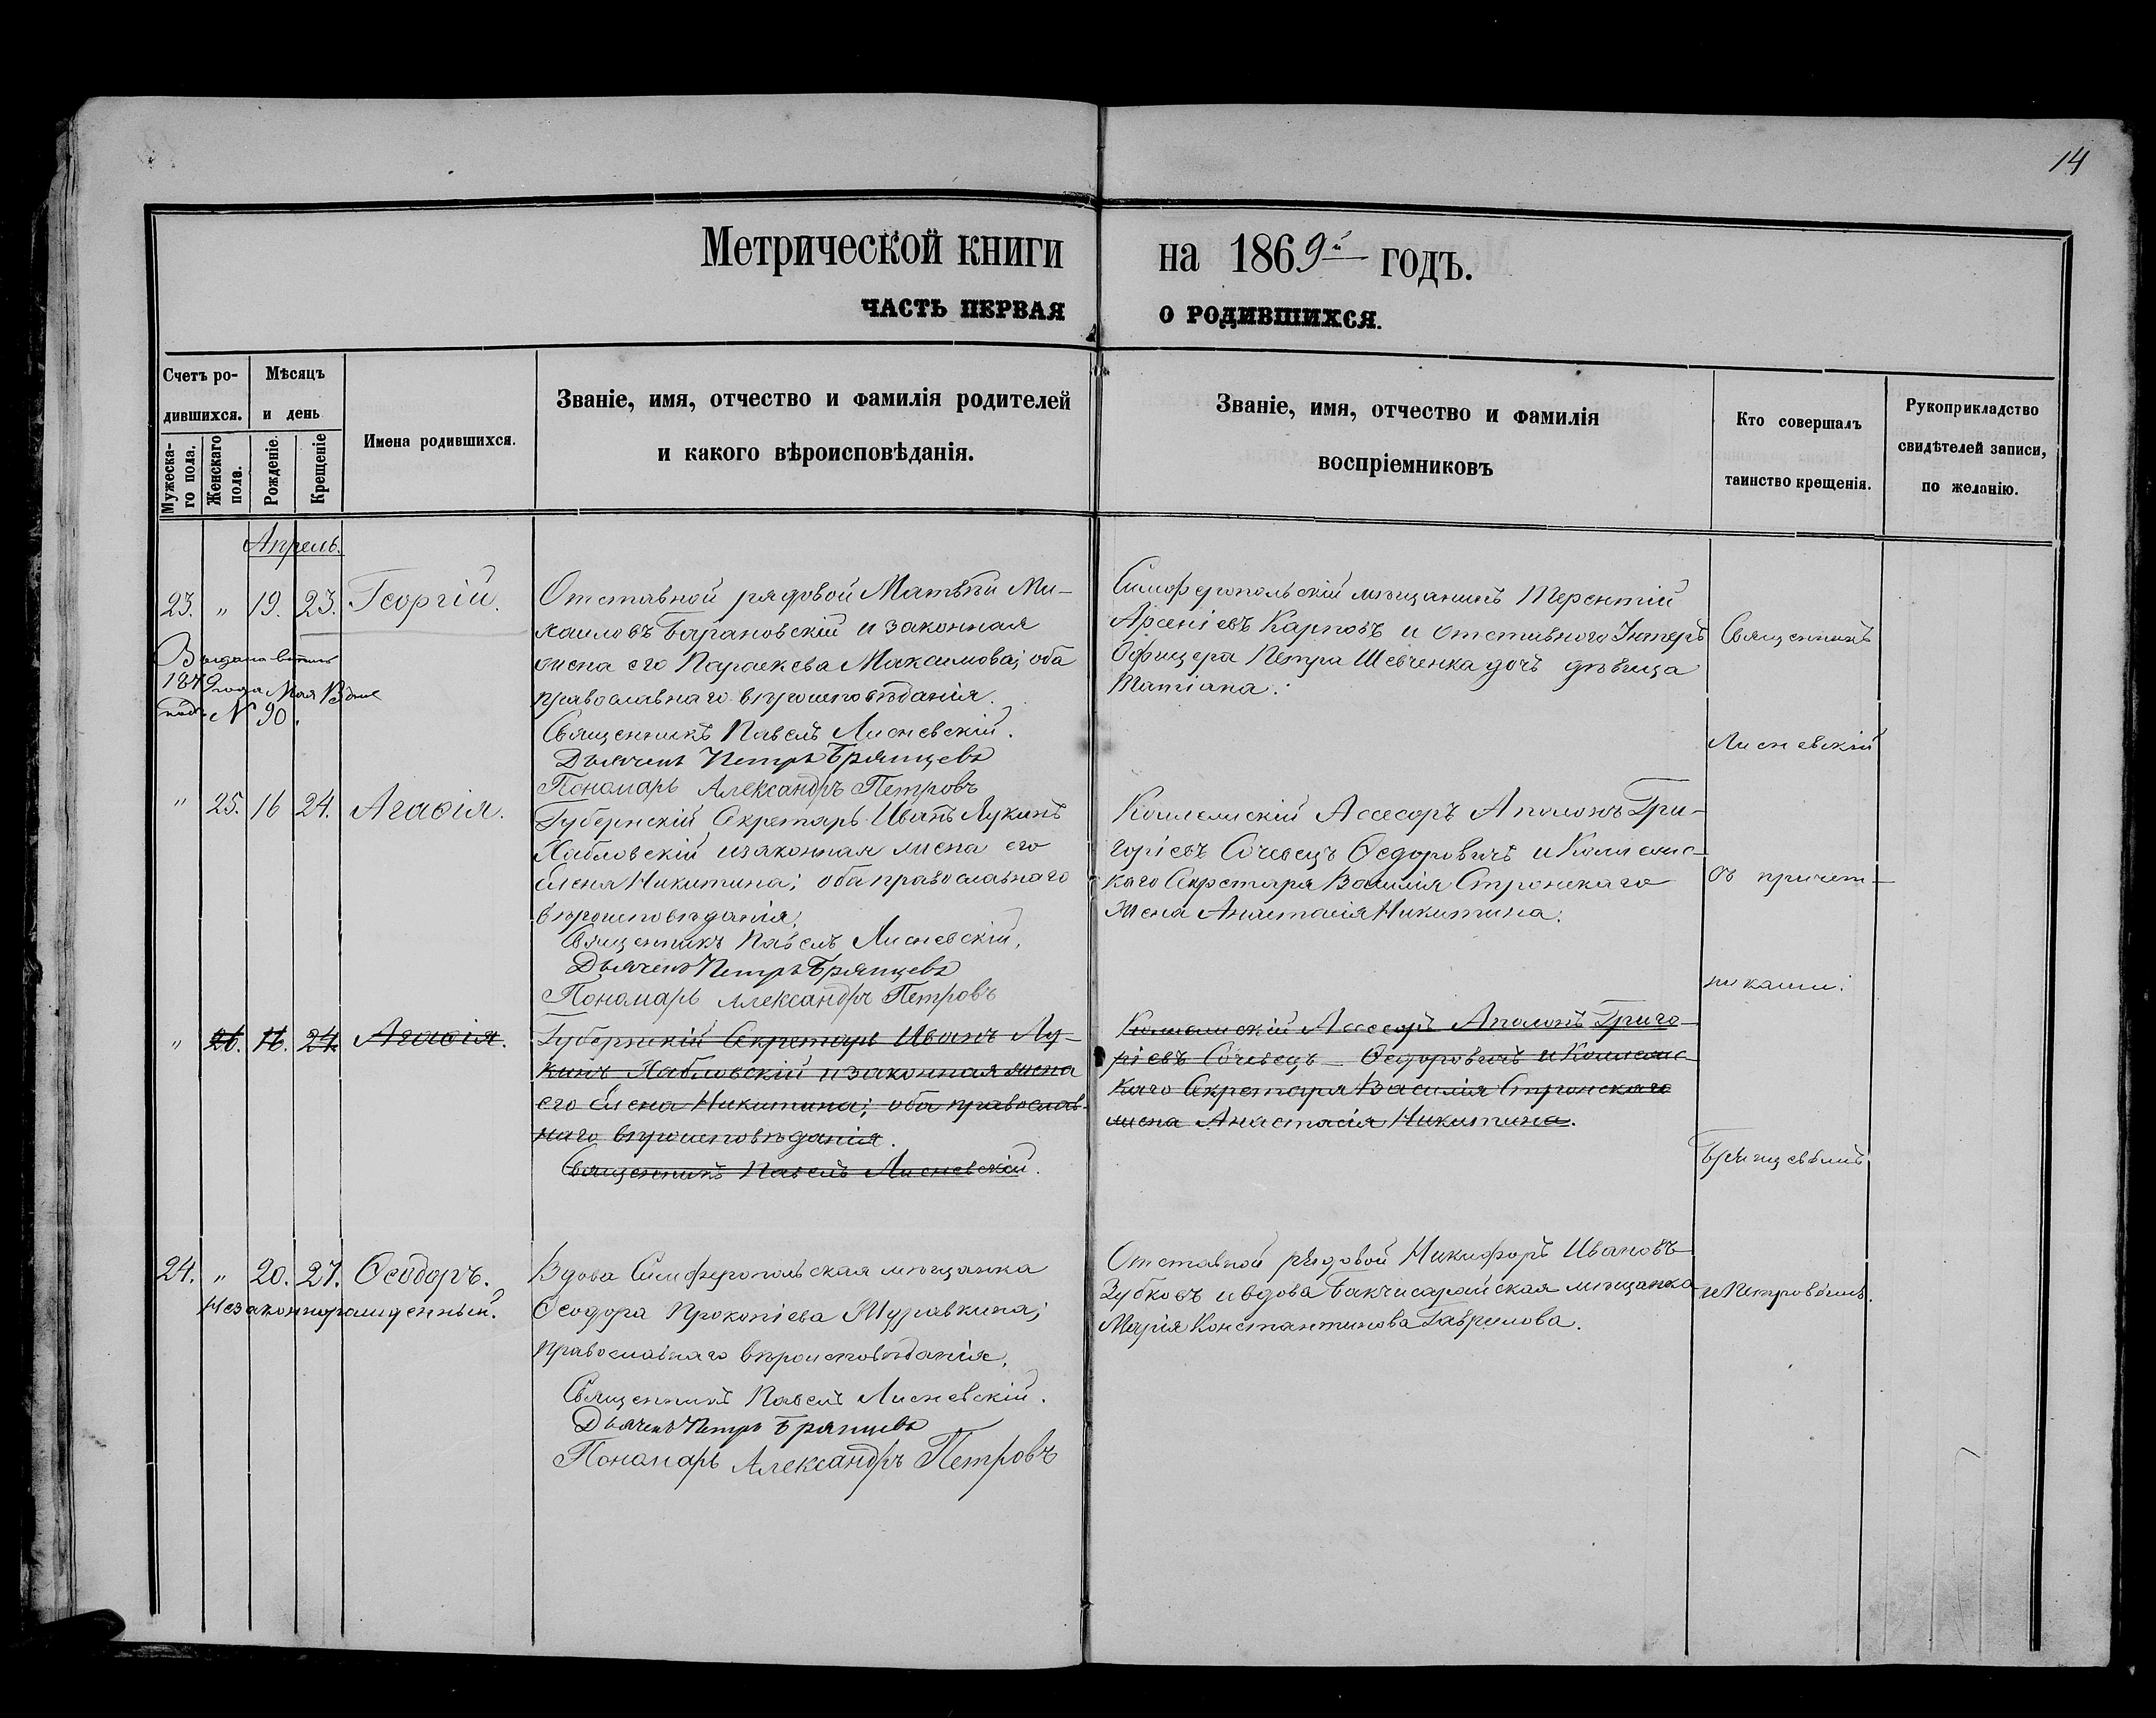 14
Метрической книги на 1869й годъ.
ЧАСТЬ ПЕРВАЯ О РОДИВШИХСЯ.
Счетъ ро-
дившихся.
Мужеска-
го пола.
Женскаго
пола.
Мѣсяцъ
и день
Рожденіе.
Крещеніе
Имена родившихся.
Званіе, имя, отчество и фамилія родителей
и какого вѣроисповѣданія.
Званіе, имя, отчество и фамилія
воспріемниковъ
Кто совершалъ
таинство крещенія.
Рукоприкладство
свидѣтелей записи,
по желанію.
Апрель.
23. „ 19. 23. Георгій.
Выдана
1879 года Мая
под. N 90.
Отставной рядовой Матвѣй Ми-
хаиловъ Барановскій и законная
жена его Параскева Максимова; оба
православнаго вѣроисповѣданія.
Священникъ Павелъ Лисневскій.
Дьячекъ Петръ Брянцевъ
Пономарь Александръ Петровъ
Симферопольскій мѣщанинъ Терентій
Арсеніевъ Карповъ и отставного Унтеръ
Офицера Петра Шевченка дочь дѣвица
Татіана.
„ 25. 16 24. Агаѳія.
Губернскій Секретарь Иванъ Лукинъ
Хабловскій и законная жена его
Елена Никитина; оба православнаго
вѣроисповѣданія.
Священникъ Павелъ Лисневскій.
Дьячекъ Петръ Брянцевъ
Пономарь Александръ Петровъ
Коллежскій Ассесоръ Аполонъ Гри-
горіевъ Сочевецъ Ѳедоровичъ и Коллежс-
каго Секретаря Василія Стронскаго
жена Анастасія Никитина.
„ 26. 16. 24. Агаѳія.
Губернскій Секретарь Иванъ Лу-
кинъ Хабловскій и законная жена
его Елена Никитина; оба православ-
наго вѣроисповѣданія.
Священникъ Павелъ Лисневскій.
Коллежскій Ассесоръ Аполонъ Григо-
ріевъ Сочевецъ - Ѳедоровичъ и Коллежс-
каго Секретаря Василія Стронскаго
жена Анастасія Никитина.
24. „ 20. 27. Ѳеодоръ.
Незаконнорожденный.
Вдова Симферопольская мѣщанка
Ѳеодора Прокопіева Журавкина;
православнаго вѣроисповѣданія.
Священникъ Павелъ Лисневскій.
Дьячекъ Петръ Брянцевъ
Пономарь Александръ Петровъ
Отставной рядовой Никифоръ Ивановъ
Зубковъ и вдова Бакчисарайская мѣщанка
Марія Константинова Гаврилова.
Священникъ
Лисневскій
съ причет-
никами:
Брянцевымъ
и Петровымъ.